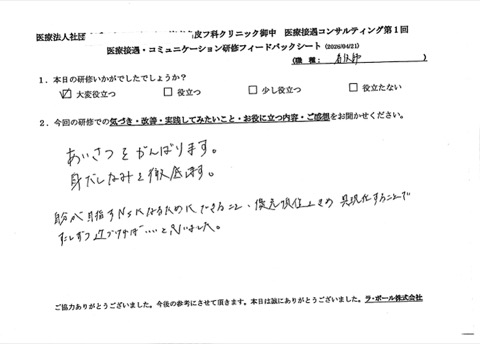 医療法人社団 皮フ科クリニック御中 医療接遇コンサルティング第1回
医療接遇・コミュニケーション研修フィードバックシート (2026/04/21)
(職種: 看護師 )
1.本日の研修いかがでしたでしょうか?
☑大変役立つ □役立つ □少し役立つ □役立たない
2.今回の研修での気づき・改善・実践してみたいこと・お役に立つ内容・ご感想をお聞かせください。
あいさつをがんばります。
身だしなみを徹底します。
自分が目指すNsになるためにできること、優先順位 具現化することで
すこしずつ近づければ····と思いました。
ご協力ありがとうございました。今後の参考にさせて頂きます。本日は誠にありがとうございました。ラ・ポール株式会社